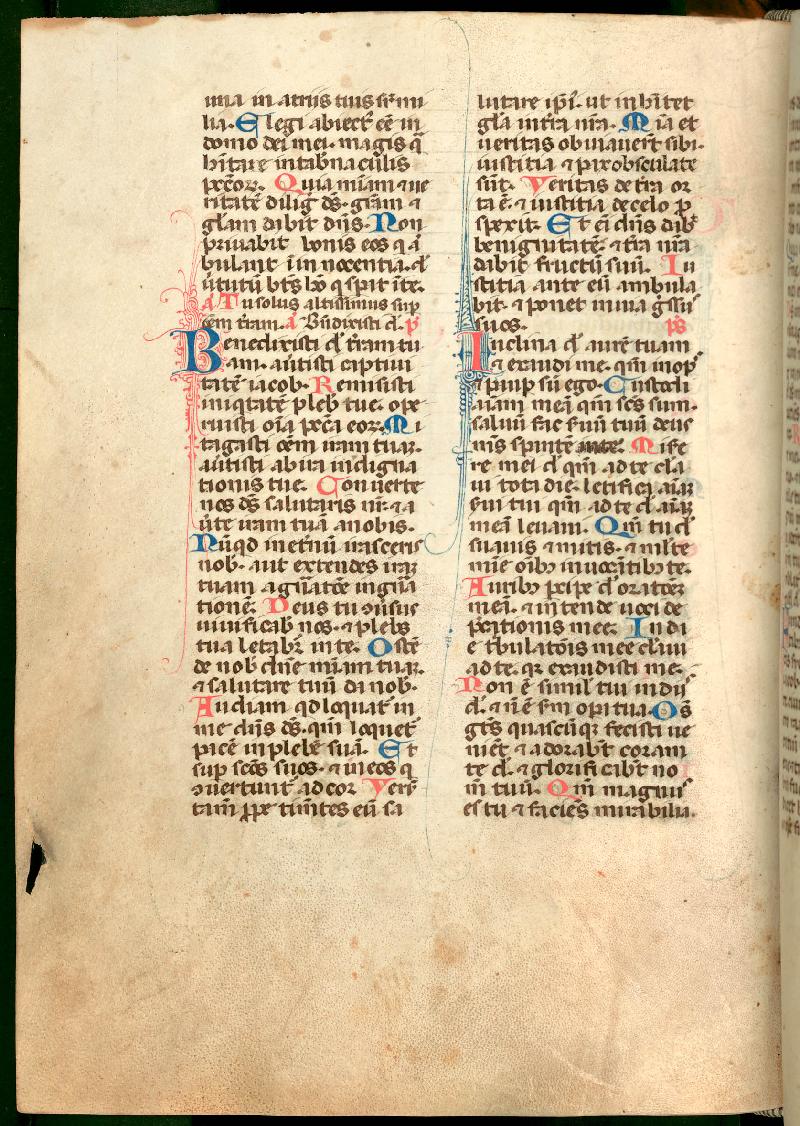 una in atriis tuis sr̄ mi
lia. Elegi abiect̄ eē in
domo dei mei. magis q̄
h̄itare in tab̄naculis
pcc̄oꝝ. Quia miām ⁊ ue
ritatē diliḡ ds̄. gr̄am ⁊
gl̄am dabit dn̄s. Non
priuabit bonis eos q̄ ā
bulant īn nocentia. d̄
ūtutū bt̄s hō q̄ sp̄at ī te.
a Tu solus altissimus sup
om̄em t̄ram. a Bn̄dixisti d̄. p̄
Benedixisti d̄ t̄ram tu
am. autisti captiui
tatē iacob. Remisisti
iniqtatē pleb̄ tue. ope
ruisti oīa pcc̄a eoꝝ. Mi
tigasti oēm iram tuaꝫ.
autisti ab ira indigna
tionis tue. Conuerte
nos ds̄ salutaris nr̄. ⁊ a
ūte iram tuā a nobis.
Nūqd in et̄nū irasceris
nob. aut extendes iraꝫ
tuam a gn̄atōe in gn̄a
tionē. Deus tu ꝯuisus
uiuificab̄ nos. ⁊ plebs
tua letab̄r in te. Ostē
de nob̄ dn̄e miām tuaꝫ.
⁊ salutare tuū da nob̄.
Audiam qd loquat̄ in
me dn̄s ds̄. qm̄ loquet̄
pacē in plebē suā. Et
sup scōs suos. ⁊ in eos q
ꝯuertunt̄ ad cor. Ver̄
tam̄ ꝓpe tim̄tes eū sa
lutare ip̄i. ut inh̄itet
gl̄a in t̄ra nr̄a. Mīa et
ueritas obuiauer̄t sibi.
iustitia ⁊ pax obsculate
sūt. Veritas de t̄ra or
ta ē. ⁊ iustitia de celo p̄
spexit. Et eī dn̄s dab̄
benignitatē. ⁊ t̄ra nr̄a
dabit fructū suū. Iu
stitia ante eū ambula
bit. ⁊ ponet in uia gssus
suos. ps̄
Inclina d̄ aurē tuam
⁊ exaudi me. qm̄ inops
⁊ paup sū ego. Custodi
aīam meā qm̄ scs̄ sum.
saluū fac s̄uū tuū deus
ms̄ sp̄antē in te. Mise
re mei d̄ qm̄ ad te cla
ui tota die. letifica aīaꝫ
s̄ui tui qm̄ ad te d̄ aīaꝫ
meā leuaui. Qm̄ tu d̄
suauis ⁊ mitis. ⁊ mlt̄e
mīe oīb inuocātib te.
Aurib pcipe d̄ oratōeꝫ
meā. ⁊ intende uoci de
p̄cationis mee. In di
e t̄bulatōis mee clam̄
ad te. qꝛ exaudisti me.
Non ē simil̄ tui in diis
d̄. ⁊ n̄ ē sm̄ opa tua. Os̄
gt̄s quascūqꝫ fecisti ue
niēt ⁊ adorab̄t coram
te d̄. ⁊ glorificab̄t no
m̄ tuū. Qm̄ magnus
es tu ⁊ faciēs mirabilia.